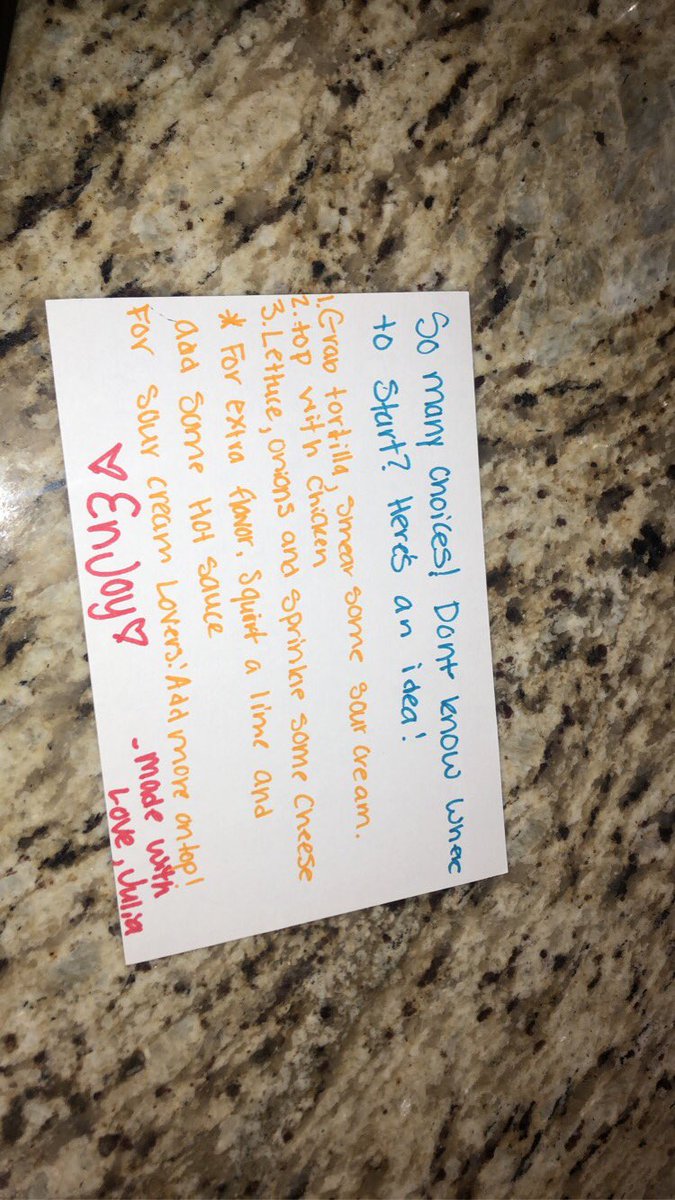 So many choices! Dont know where
to Start? Here's an idea!
1. Grab tortilla, smear some sour cream.
2. top with chicken
3. Lettuce, onions and sprinkle some cheese
* For extra flavor, squirt a lime and
add some Hot sauce
For sour cream Lovers: Add more on top!
♡ Enjoy ♡
- made with
Love, Julia